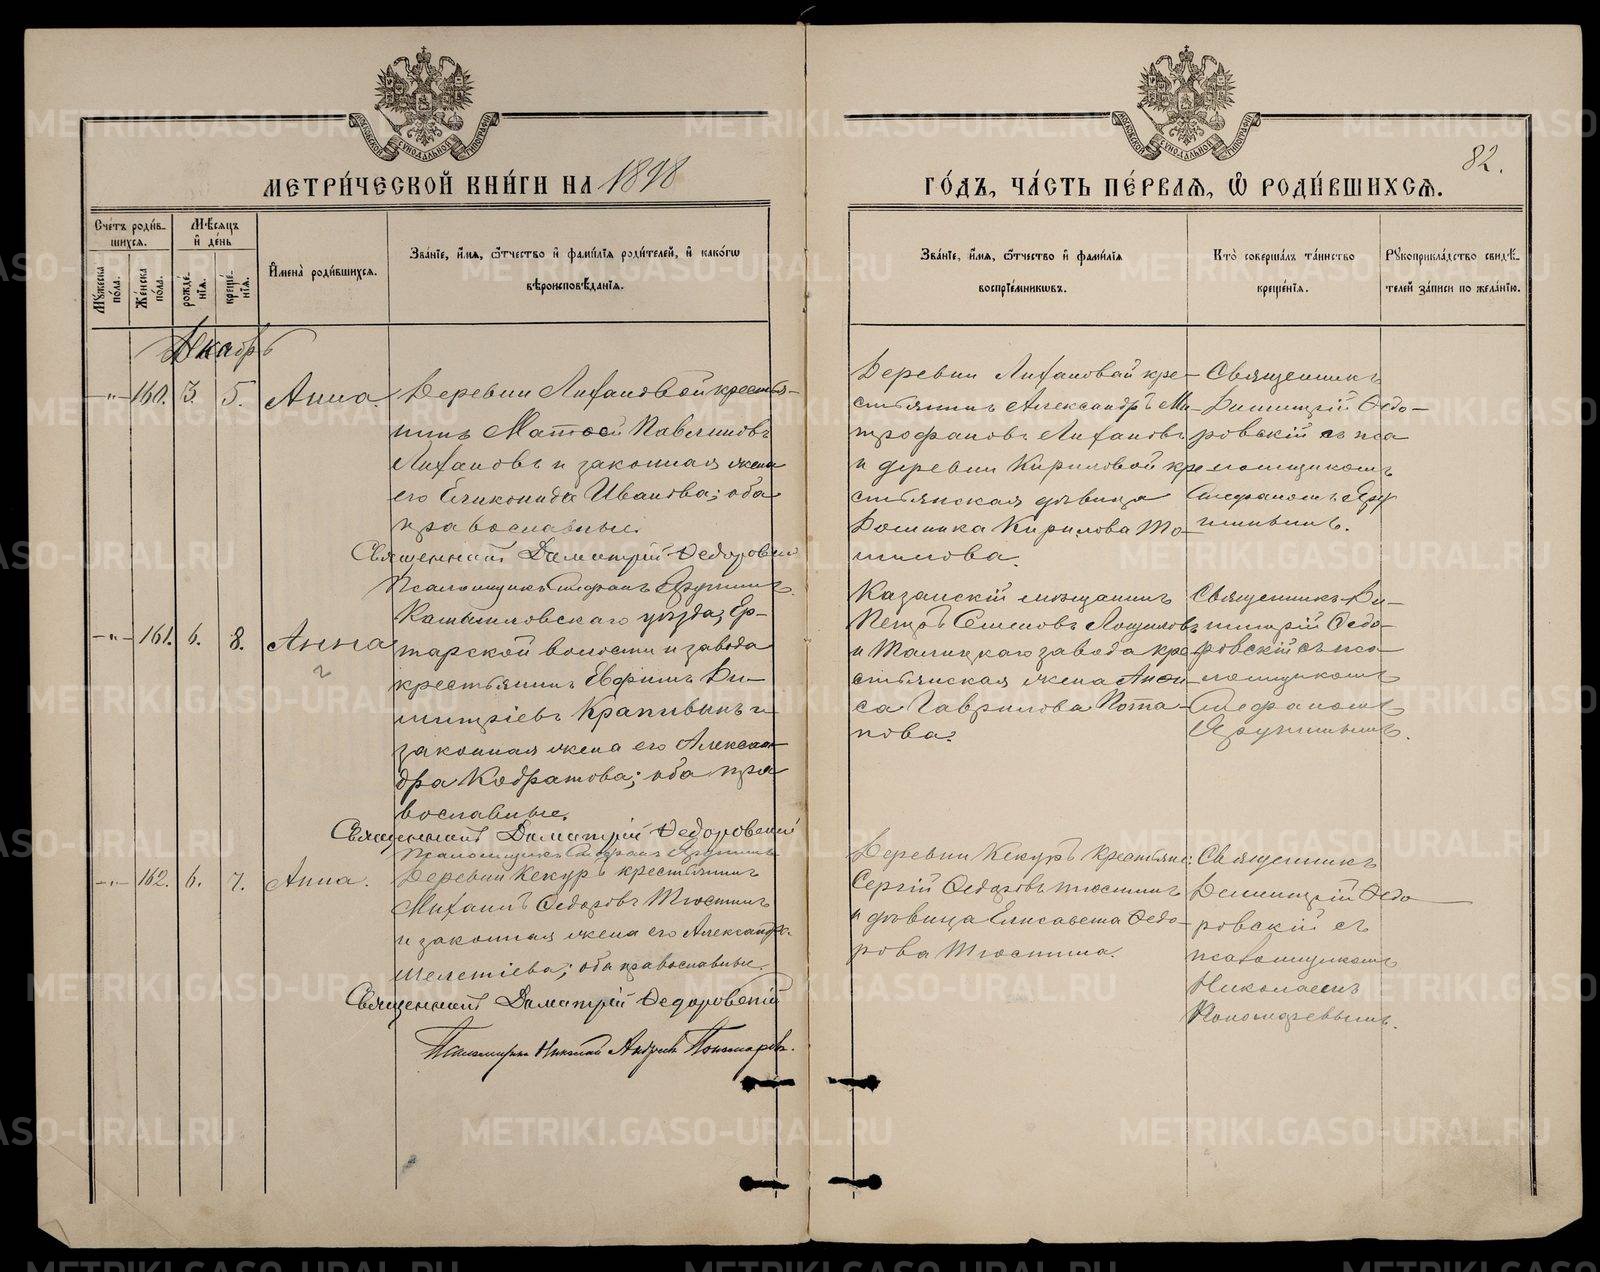 МЕТРИ́ЧЕСКОЙ КНИ́ГИ НА 1898
ГО́ДЪ, ЧА́СТЬ ПЕ́РВАѦ, Ѽ РОДИ́ВШИХСѦ.
82.
Сче́тъ роди́в-
шихся.
Мѣ́сяцъ
и̂ де́нь
Му́жеска
по́ла.
Же́нска
по́ла.
рожде́-
нїя.
креще́-
нїя.
И̂мена̀ роди́вшихся.
Зва́нїе, и̂́мя, ѻ̂́тчество и̂ фами́лїя роди́телей, и̂ како́гѡ
вѣроисповѣ́данїя.
Зва́нїе, и̂́мя, ѻ̂́тчество и̂ фами́лїя
воспрїе́мникѡвъ.
Кто̀ соверша́лъ та́инство
креще́нїя.
Рꙋкоприкла́дство свидѣ́-
телей за́писи по жела́нїю.
Декабрь
—"— 160. 3. 5. Анна.
Деревни Лихановой крестья-
нинъ Матѳей Павлиновъ
Лихановъ и законная жена
его Еликонида Иванова; оба
православные.
Священникъ Димитрій Ѳедоровскій
Псаломщикъ Стефанъ Ярушинъ.
Деревни Лихановой кре-
стьянинъ Александръ Ми-
трофановъ Лихановъ
и деревни Кириловой кре
стьянская дѣвица
Домника Кирилова То-
милова.
Священникъ
Димитрій Ѳедо-
ровскій съ пса
ломщикомъ
Стефаномъ Яру
шинымъ.
—"— 161. 6. 8. Анна
Камышловскаго уѣзда, Ер-
тарской волости и завода
крестьянинъ Евфимъ Ди-
митріевъ Крапивинъ и
законная жена его Алексан-
дра Кодратова; оба пра
вославные.
Священникъ Димитрій Ѳедоровскій
Псаломщикъ Стефанъ Ярушинъ
Казанскій мѣщанинъ
Петръ Семеновъ Лощиловъ
и Талицкаго завода кре-
стьянская жена Анѳи-
са Гаврилова Пота-
пова.
Священникъ Ди-
митрій Ѳедо-
ровскій съ пса-
ломщикомъ
Стефаномъ
Ярушинымъ.
—"— 162. 6. 7. Анна.
Деревни Кекуръ крестьянинъ
Михаилъ Ѳедоровъ Тюстинъ
и законная жена его Александра
Мелетіева; оба православные.
Священникъ Димитрій Ѳедоровскій
Псаломщикъ Николай Андреевъ Пономаревъ.
Деревни Кекуръ крестьяне:
Сергій Ѳедоровъ Тюстинъ
и дѣвица Елисавета Ѳедо-
рова Тюстина.
Священникъ
Димитрій Ѳедо
ровскій съ
псаломщикомъ
Николаемъ
Пономаревымъ.
METRIKI.GASO-URAL.RU